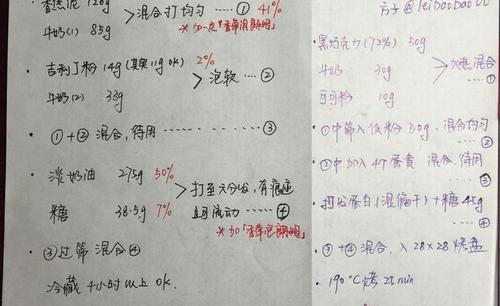 香蕉泥 120g
牛奶(1) 85g
混合打均匀 ① 41%
※加一点「香蕉
· 吉利丁粉 14g (11g OK) 2%
牛奶(2) 38g
泡软 ②
· ①+②混合,待用 ……… ③
· 淡奶油 275g 50%
糖 38.5g 7%
打至六分发,有痕迹
且流动 …… ④
※加「香蕉
· ③过筛 混合④
冷藏 4小时以上 OK.
方子@leibaobao
黑巧克力(72%) 50g
牛奶 30g
可可粉 10g
加热混合
①
· ①中筛入低粉 50g,混合均匀
②
· ②中加入4个蛋黄 混合,待用
③
· 打发蛋白(湿偏干)+糖 45g
④
· ③+④混合,入 28×28 烤盘
· 190°C烤 22 min